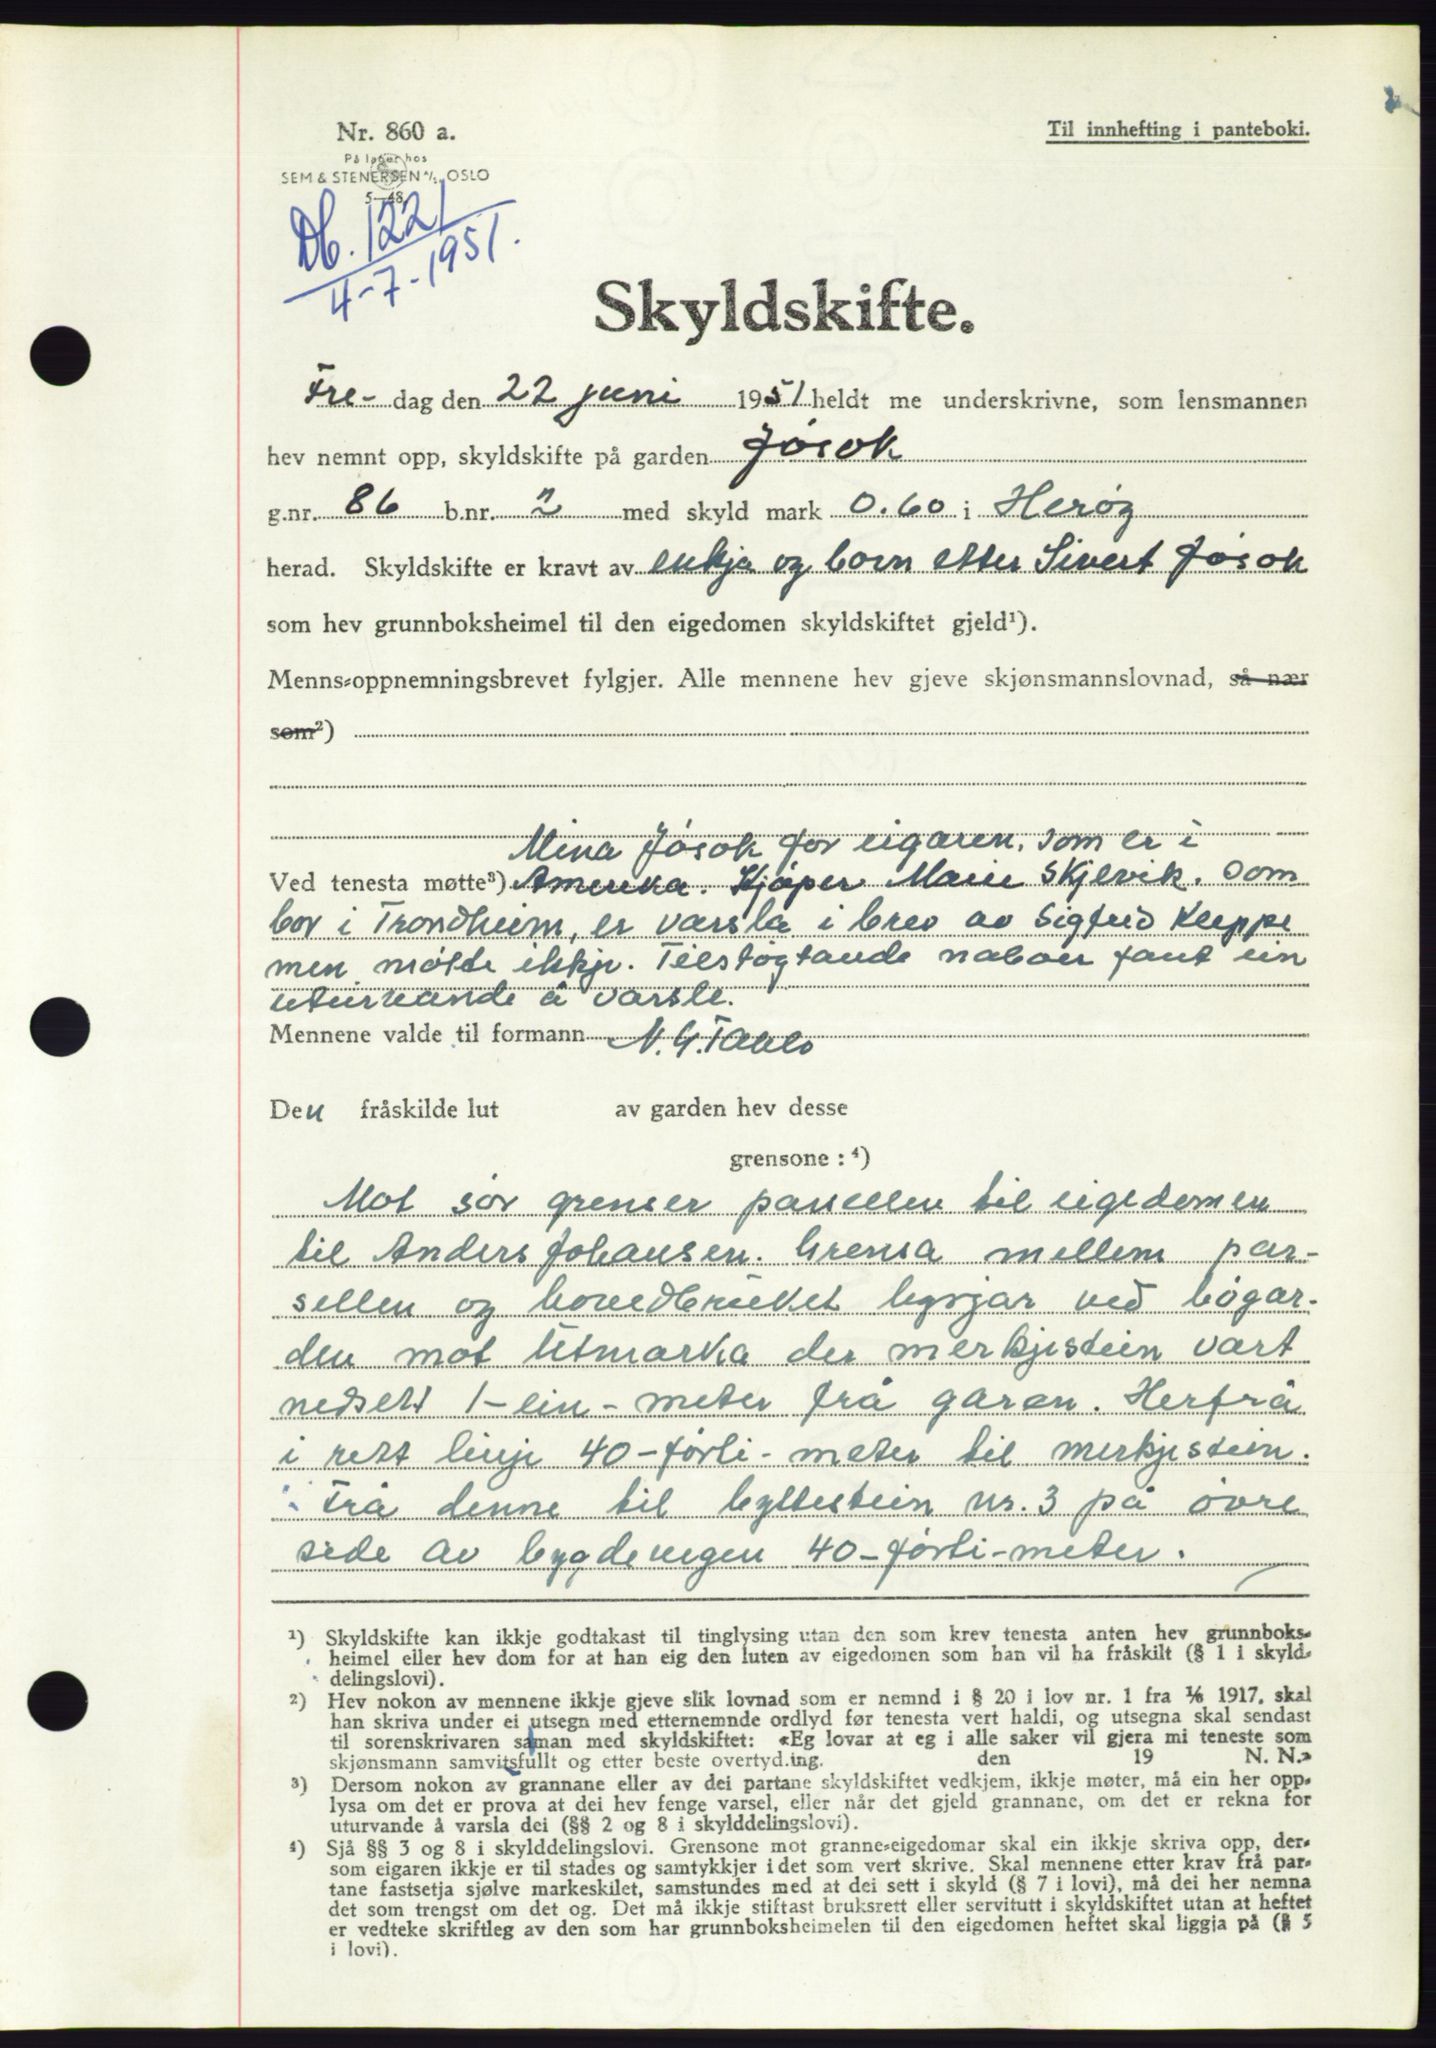 Nr. 860 a.
Til innhefting i panteboki.
På lager hos
SEM & STENERSEN A/S, OSLO
5—48.
Db. 1221
4-7-1951.
Skyldskifte.
Fre- dag den 22 juni 1951 heldt me underskrivne, som lensmannen
hev nemnt opp, skyldskifte på garden Jøsok
g.nr. 86 b.nr. 2 med skyld mark 0.60 i Herøy
herad. Skyldskifte er kravt av enkja og born etter Sivert Jøsok
som hev grunnboksheimel til den eigedomen skyldskiftet gjeld¹).
Menns-oppnemningsbrevet fylgjer. Alle mennene hev gjeve skjønsmannslovnad, så nær
som²)
Mina Jøsok for eigaren, som er i
Ved tenesta møtte³) Amerika. Kjøper Marie Skjevik. som
bor i Trondheim, er varsla i brev av Sigfrid Kleppe
men møtte ikkje. Tilstøytande naboer fant ein
uturvande å varsle.
Mennene valde til formann N. G. Tarlo
Den fråskilde lut av garden hev desse
grensone : ⁴)
Mot sør grenser parsellen til eigedomen
til Anders Johansen. Grensa mellem par-
sellen og hovedbruket byrjar ved bøgar-
den mot Utmarka der merkjestein vart
nedsett 1-ein-meter frå garen. Herfrå
i rett linje 40-førti-meter til merkjestein.
Frå denne til byttestein nr. 3 på øvre
side av bygdevegen 40-førti-meter.
¹) Skyldskifte kan ikkje godtakast til tinglysing utan den som krev tenesta anten hev grunnboks-
heimel eller hev dom for at han eig den luten av eigedomen som han vil ha fråskilt (§ 1 i skyld-
delingslovi).
²) Hev nokon av mennene ikkje gjeve slik lovnad som er nemnd i § 20 i lov nr. 1 fra 1/6 1917, skal
han skriva under ei utsegn med etternemnde ordlyd før tenesta vert haldi, og utsegna skal sendast
til sorenskrivaren saman med skyldskiftet: «Eg lovar at eg i alle saker vil gjera mi teneste som
skjønsmann samvitsfullt og etter beste overtyd.ing. den 19 N. N.»
³) Dersom nokon av grannane eller av dei partane skyldskiftet vedkjem, ikkje møter, må ein her opp-
lysa om det er prova at dei hev fenge varsel, eller når det gjeld grannane, om det er rekna for
uturvande å varsla dei (§§ 2 og 8 i skylddelingslovi).
⁴) Sjå §§ 3 og 8 i skylddelingslovi. Grensone mot granne-eigedomar skal ein ikkje skriva opp, der-
som eigaren ikkje er til stades og samtykkjer i det som vert skrive. Skal mennene etter krav frå par-
tane fastsetja sjølve markeskilet, samstundes med at dei sett i skyld (§ 7 i lovi), må dei her nemna
det som trengst om det og. Det må ikkje stiftast bruksrett eller servitutt i skyldskiftet utan at heftet
er vedteke skriftleg av den som har grunnboksheimelen til den eigedomen heftet skal liggja på (§ 5
i lovi).